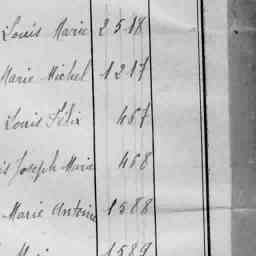 Louis Marie 2518
Marie Michel 1217
Louis Félix 467
is Joseph Marie 468
Marie Antoine 1588
1589